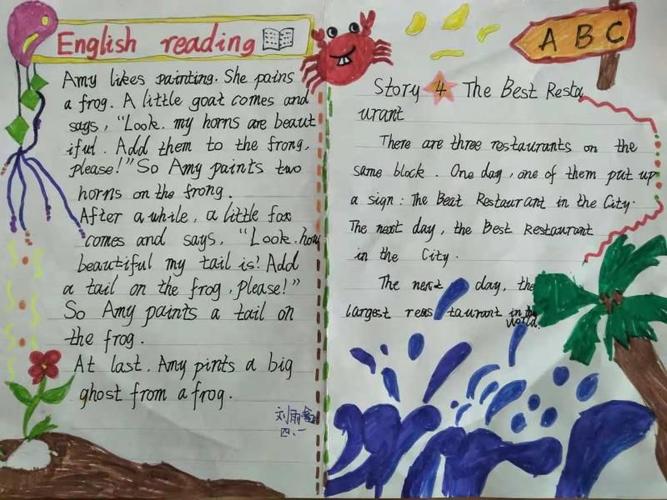 English reading
Amy likes painting. She pains
a frog. A little goat comes and
says, "Look. my horns are beaut
iful. Add them to the frong,
please!" So Amy paints two
horns on the frong.
After a while, a little fox
comes and says, "Look. how
beautiful my tail is! Add
a tail on the frog, please!"
So Amy paints a tail on
the frog.
At last. Amy pints a big
ghost from a frog.
刘雨
四.一
A B C
Story 4 The Best Resta
urant
There are three restaurants on the
same block. One day, one of them put up
a sign: The Best Restaurant in the City.
The next day, the Best Restaurant
in the City.
The next day, the
largest res taurant in the
world.